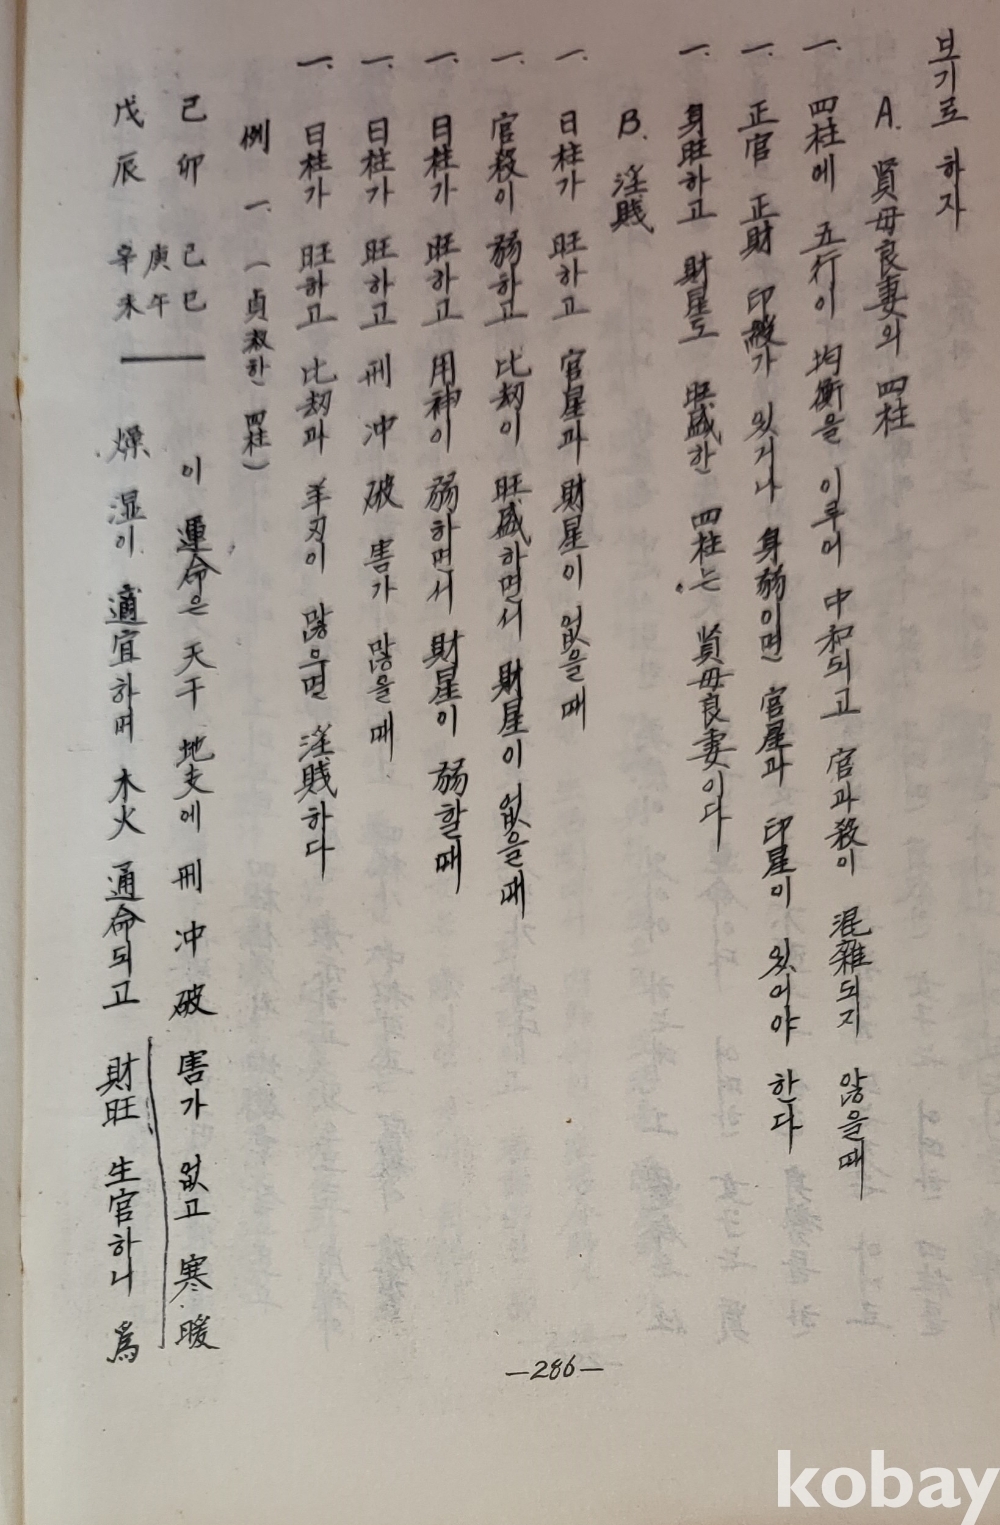 보기로 하자
A. 賢母良妻의 四柱
一. 四柱에 五行이 均衡을 이루어 中和되고 官과 殺이 混雜되지 않을때
一. 正官 正財 印綬가 있거나 身弱이면 官星과 印星이 있어야 한다
一. 身旺하고 財星도 旺盛한 四柱는 賢母良妻이다
B. 淫賤
一. 日柱가 旺하고 官星과 財星이 없을때
一. 官殺이 弱하고 比劫이 旺盛하면서 財星이 없을때
一. 日柱가 旺하고 用神이 弱하면서 財星이 弱할때
一. 日柱가 旺하고 刑 冲 破 害가 많을때
一. 日柱가 旺하고 比劫과 羊刃이 많으면 淫賤하다
例 一. (貞淑한 四柱)
己卯 己巳 이 運命은 天干 地支에 刑 冲 破 害가 없고 寒暖
庚午
戊辰 辛未 燥 湿이 適宜하며 木火 通命되고 財旺 生官하니 爲
—286—
kobay